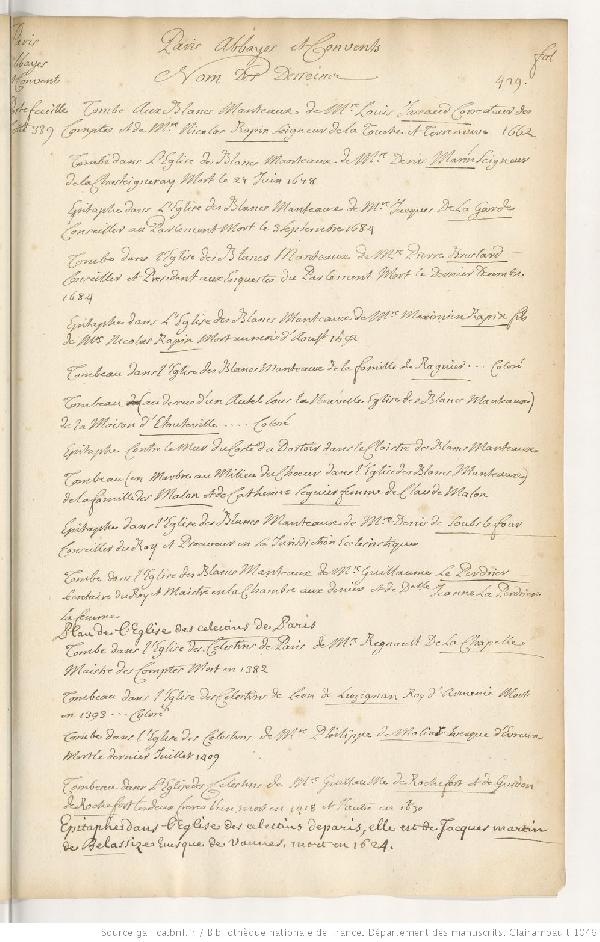 Paris
Abbayes
et Convents
Paris Abbayes et Convents
fol
Nom des Desseins
429.
Portefeuille
339
Tombe Aux Blancs Manteaux de Mre Louis Correcteur des
Comptes et de Mre Nicolas Rapin Seigneur de la Touche et Terreneuve 1662
Tombe dans L'Eglise des Blancs Manteaux de Mre Denis Marin Seigneur
de la Chasteigneray Mort le 27 Juin 1678
Epitaphe dans L'Eglise des Blancs Manteaux de Mre Jacques De La Garde
Conseiller au Parlement Mort le 3 Septembre 1684
Tombe dans l'Eglise des Blancs Manteaux de Mre Pierre
Conseiller et President aux Enquestes du Parlement Mort le Dernier
1684
Epitaphe dans L'Eglise des Blancs Manteaux de Mre Maximien Rapin fils
de Mre Nicolas Rapin Mort d'Aoust
Tombeau dans l'Eglise des Blancs Manteaux de la famille de Raguier ... Coloré
Tombeau d'un Autel sous la Nouvelle Eglise des Blancs Manteaux
de la Maison d'Estouteville .... Coloré
Epitaphe Contre le Mur du Costé du Dortoir dans le Cloistre des Blancs Manteaux
Tombeau en Marbre au Milieu du Choeur dans l'Eglise des Blancs Manteaux
de la famille des Malon et de Catherine Seguier femme de Claude Malon
Epitaphe dans l'Eglise des Blancs Manteaux de Mre Denis de Soubs le four
Conseiller du Roy et Procureur en la Jurisdiction Ecclesiastique
Tombe dans l'Eglise des Blancs Manteaux de Mre Guillaume Le Perdrier
du Roy et Maistre en la Chambre aux deniers et de Dlle Jeanne La Perdriere
sa femme
Plan de l'Eglise des celecins de Paris
Tombe dans l'Eglise des Celestins de Paris de Mre Regnault De la Chapelle
Maistre des Comptes Mort en 1382
Tombeau dans l'Eglise des Celestins de Leon de Luzegnan Roy d'Armenie Mort
en 1393 ... Coloré
Tombe dans l'Eglise des Celestins de Mre Philippe de Evesque d'Evreux
Mort le dernier Juillet 1409
Tombeau dans L'Eglise des Celestins de Mre Guillaume de Rochefort et de Guidon
de Rochefort mort en
Epitaphe dans l'Eglise des celecins de paris, elle est de Jacques martin
de Belassize Evesque de Vannes, mort en 1624.
Source gallica.bnf.fr / Bibliothèque nationale de France. Département des manuscrits. Clairambault 1046